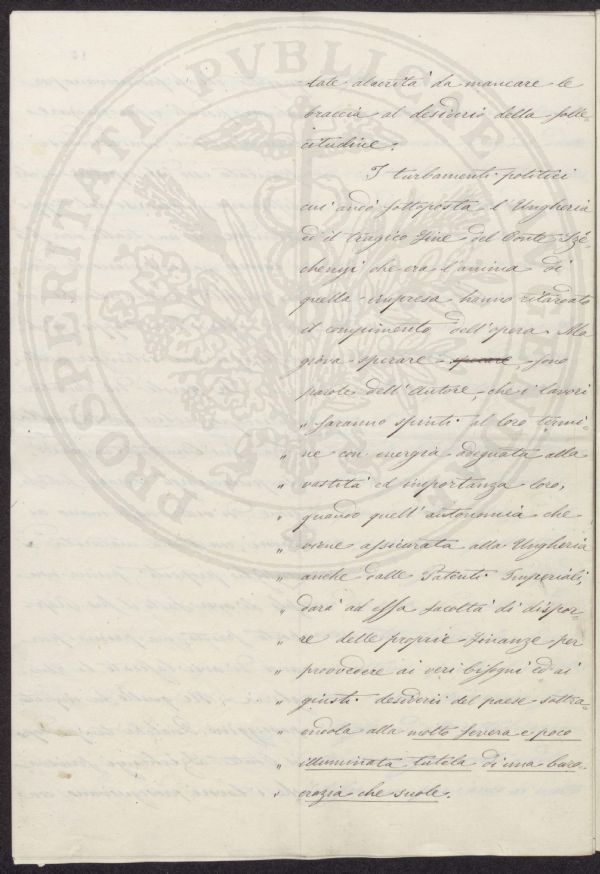 tale alacrità da mancare le
braccia al desiderio della solle=
citudine.
I turbamenti politici
cui andò sottoposta l'Ungheria
ed il tragico fine del Conte Szé=
chenyi che era l'anima di
quella impresa hanno ritardato
il compimento dell'opera. Ma
giova sperare sperare, sono
parole dell'Autore, che i lavori
„ saranno spinti al loro termi=
„ ne con energia adeguata alla
„ vastità ed importanza loro,
„ quando quell'autonomia che
„ viene assicurata alla Ungheria
„ anche dalle Patenti Imperiali,
„ darà ad essa facoltà di dispor=
„ re delle proprie finanze per
„ provvedere ai veri bisogni ed ai
„ giusti desiderii del paese sottra=
„ endola alla molto severa e poco
„ illuminata tutela di una buro=
„ crazia che suole.
PROSPERITATI PVBLICAE